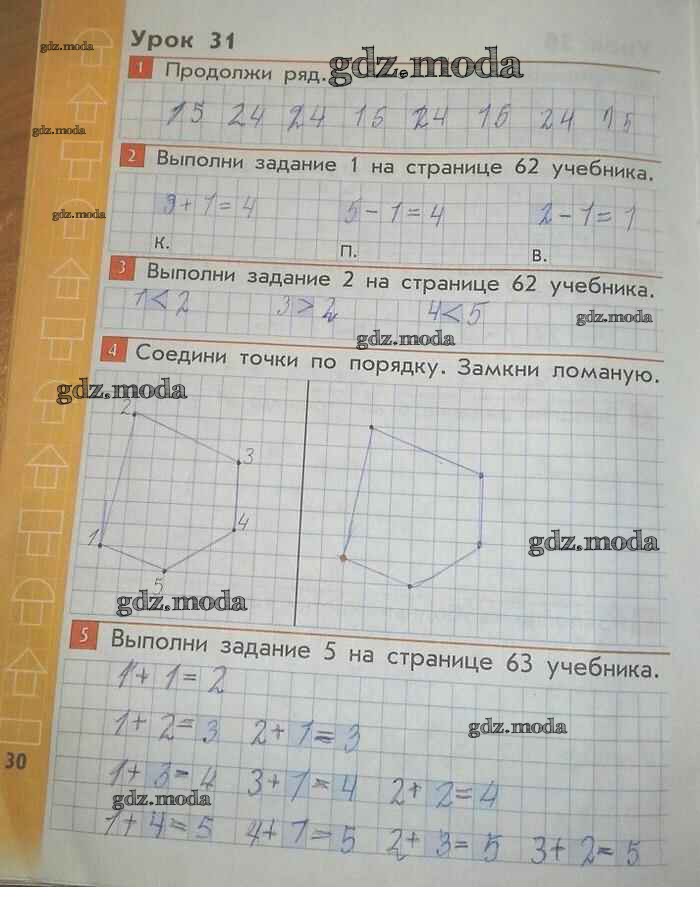 Урок 31
gdz.moda
1 Продолжи ряд. gdz.moda
15 24 24 15 24 15 24 15
gdz.moda
2 Выполни задание 1 на странице 62 учебника.
3+1=4 5-1=4 2-1=1
gdz.moda
К. П. В.
3 Выполни задание 2 на странице 62 учебника.
1<2 3>2 4<5 gdz.moda
gdz.moda
4 Соедини точки по порядку. Замкни ломаную.
gdz.moda
2
3
4
1 gdz.moda
5
gdz.moda
5 Выполни задание 5 на странице 63 учебника.
1+1=2
1+2=3 2+1=3 gdz.moda
30
1+3=4 3+1=4 2+2=4
gdz.moda
1+4=5 4+1=5 2+3=5 3+2=5